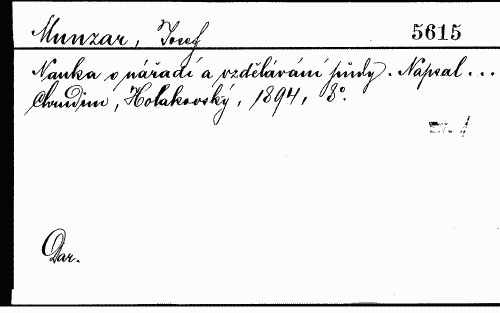 Munzar, Josef 5615
Nauka o nářadí a vzdělávání půdy. Napsal...
Chrudim, Holakovský, 1894, 8°.
Dar.